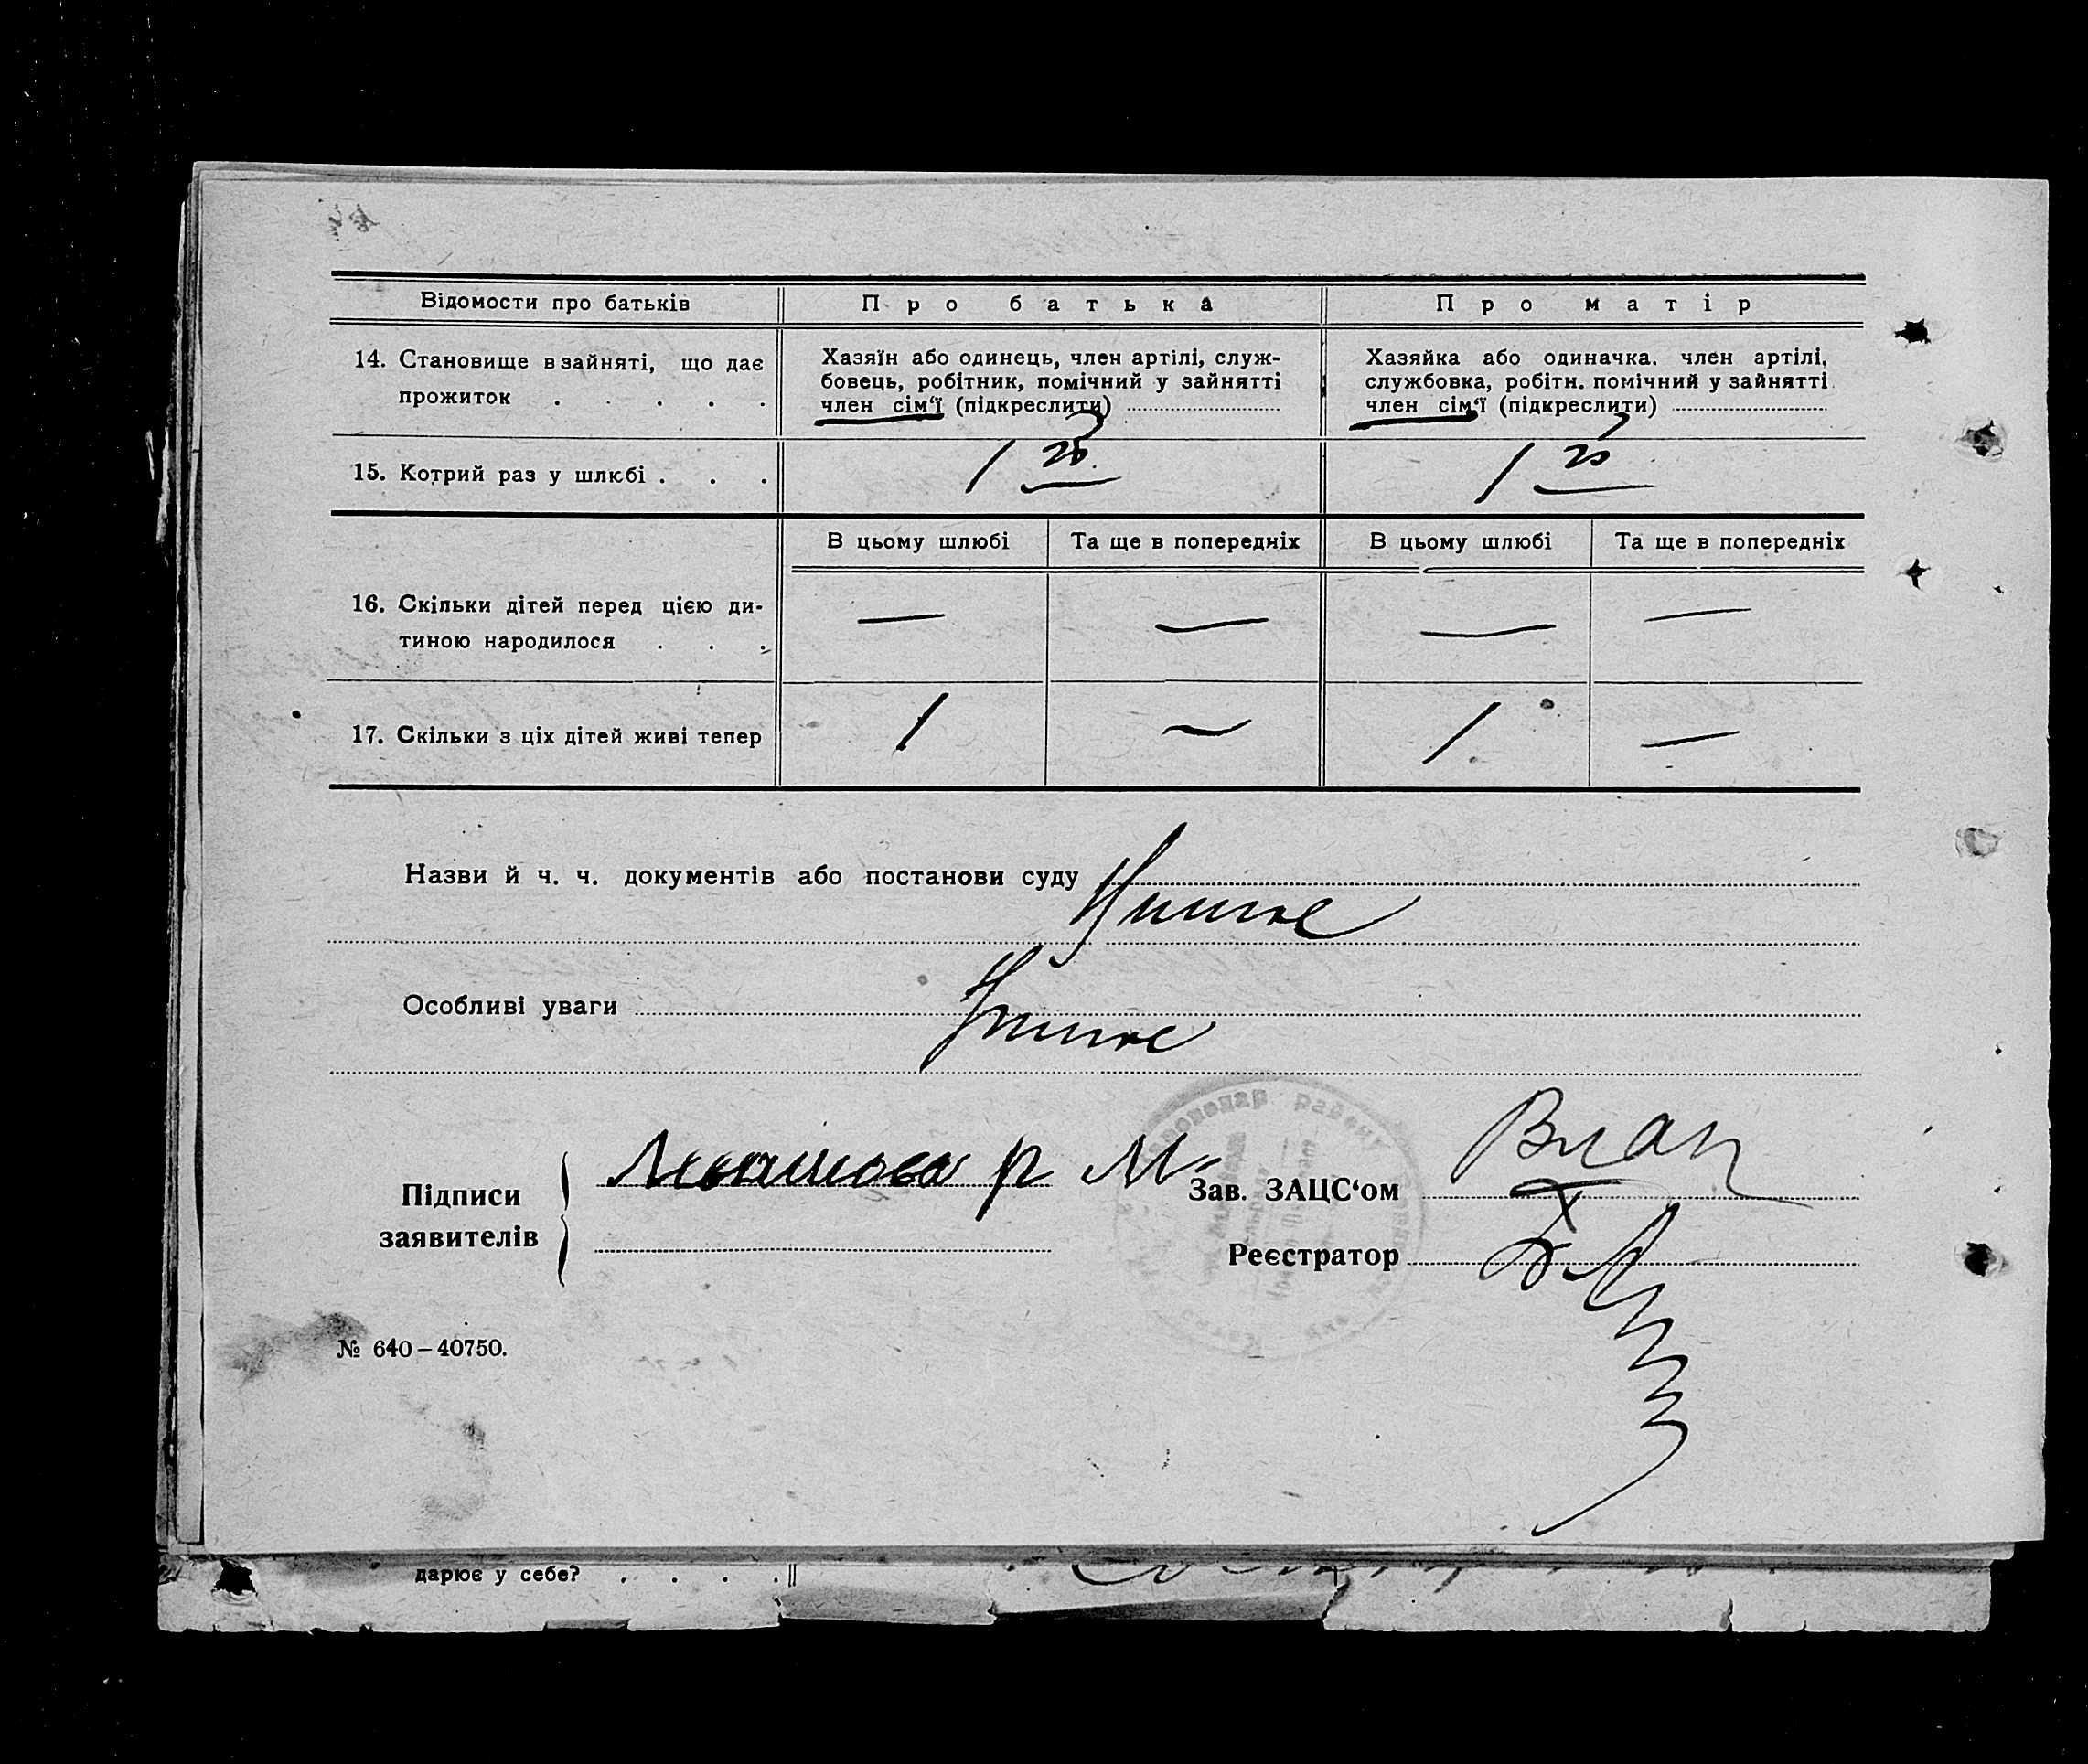 Відомости про батьків
Про батька
Про матір
14. Становище в зайняті, що дає
прожиток . . . . .
Хазяїн або одинець, член артілі, служ-
бовець, робітник, помічний у зайнятті
член сім‘ї (підкреслити)
Хазяйка або одиначка. член артілі,
службовка, робітн. помічний у зайнятті
член сім‘ї (підкреслити)
15. Котрий раз у шлюбі . . .
1
1
В цьому шлюбі
Та ще в попередніх
В цьому шлюбі
Та ще в попередніх
16. Скільки дітей перед цією ди-
тиною народилося . . .
— — — —
17. Скільки з ціх дітей живі тепер
1 — 1 —
Назви й ч. ч. документів або постанови суду
Особливі уваги
Підписи
заявителів
Зав. ЗАЦС‘ом
Реєстратор
№ 640–40750.
дарює у себе? . . . .